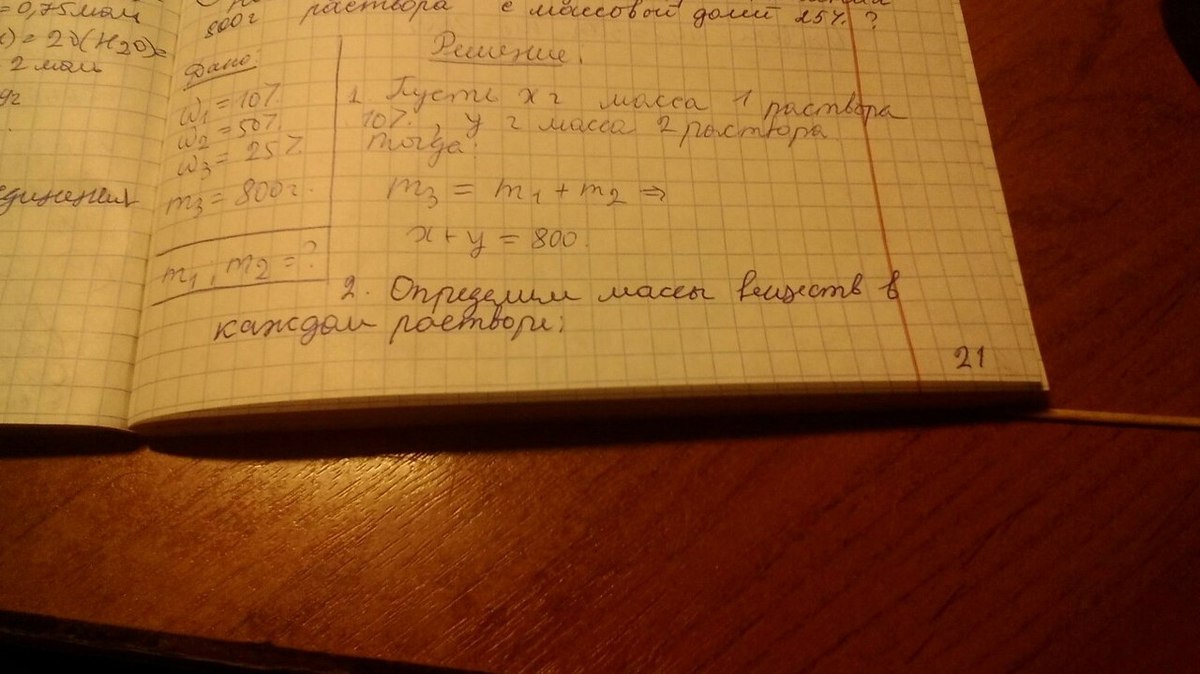 = 0,75 моль
) = 2ν(H2O) =
2 моль
единения
800г раствора с массовой долей 25% ?
Дано:
ω1 = 10%
ω2 = 50%
ω3 = 25%
m3 = 800г.
m1, m2 = ?
Решение.
1. Пусть x г масса 1 раствора
10%, y г масса 2 раствора
Тогда:
m3 = m1 + m2 ⇒
x + y = 800.
2. Определим массы веществ в
каждом растворе:
21